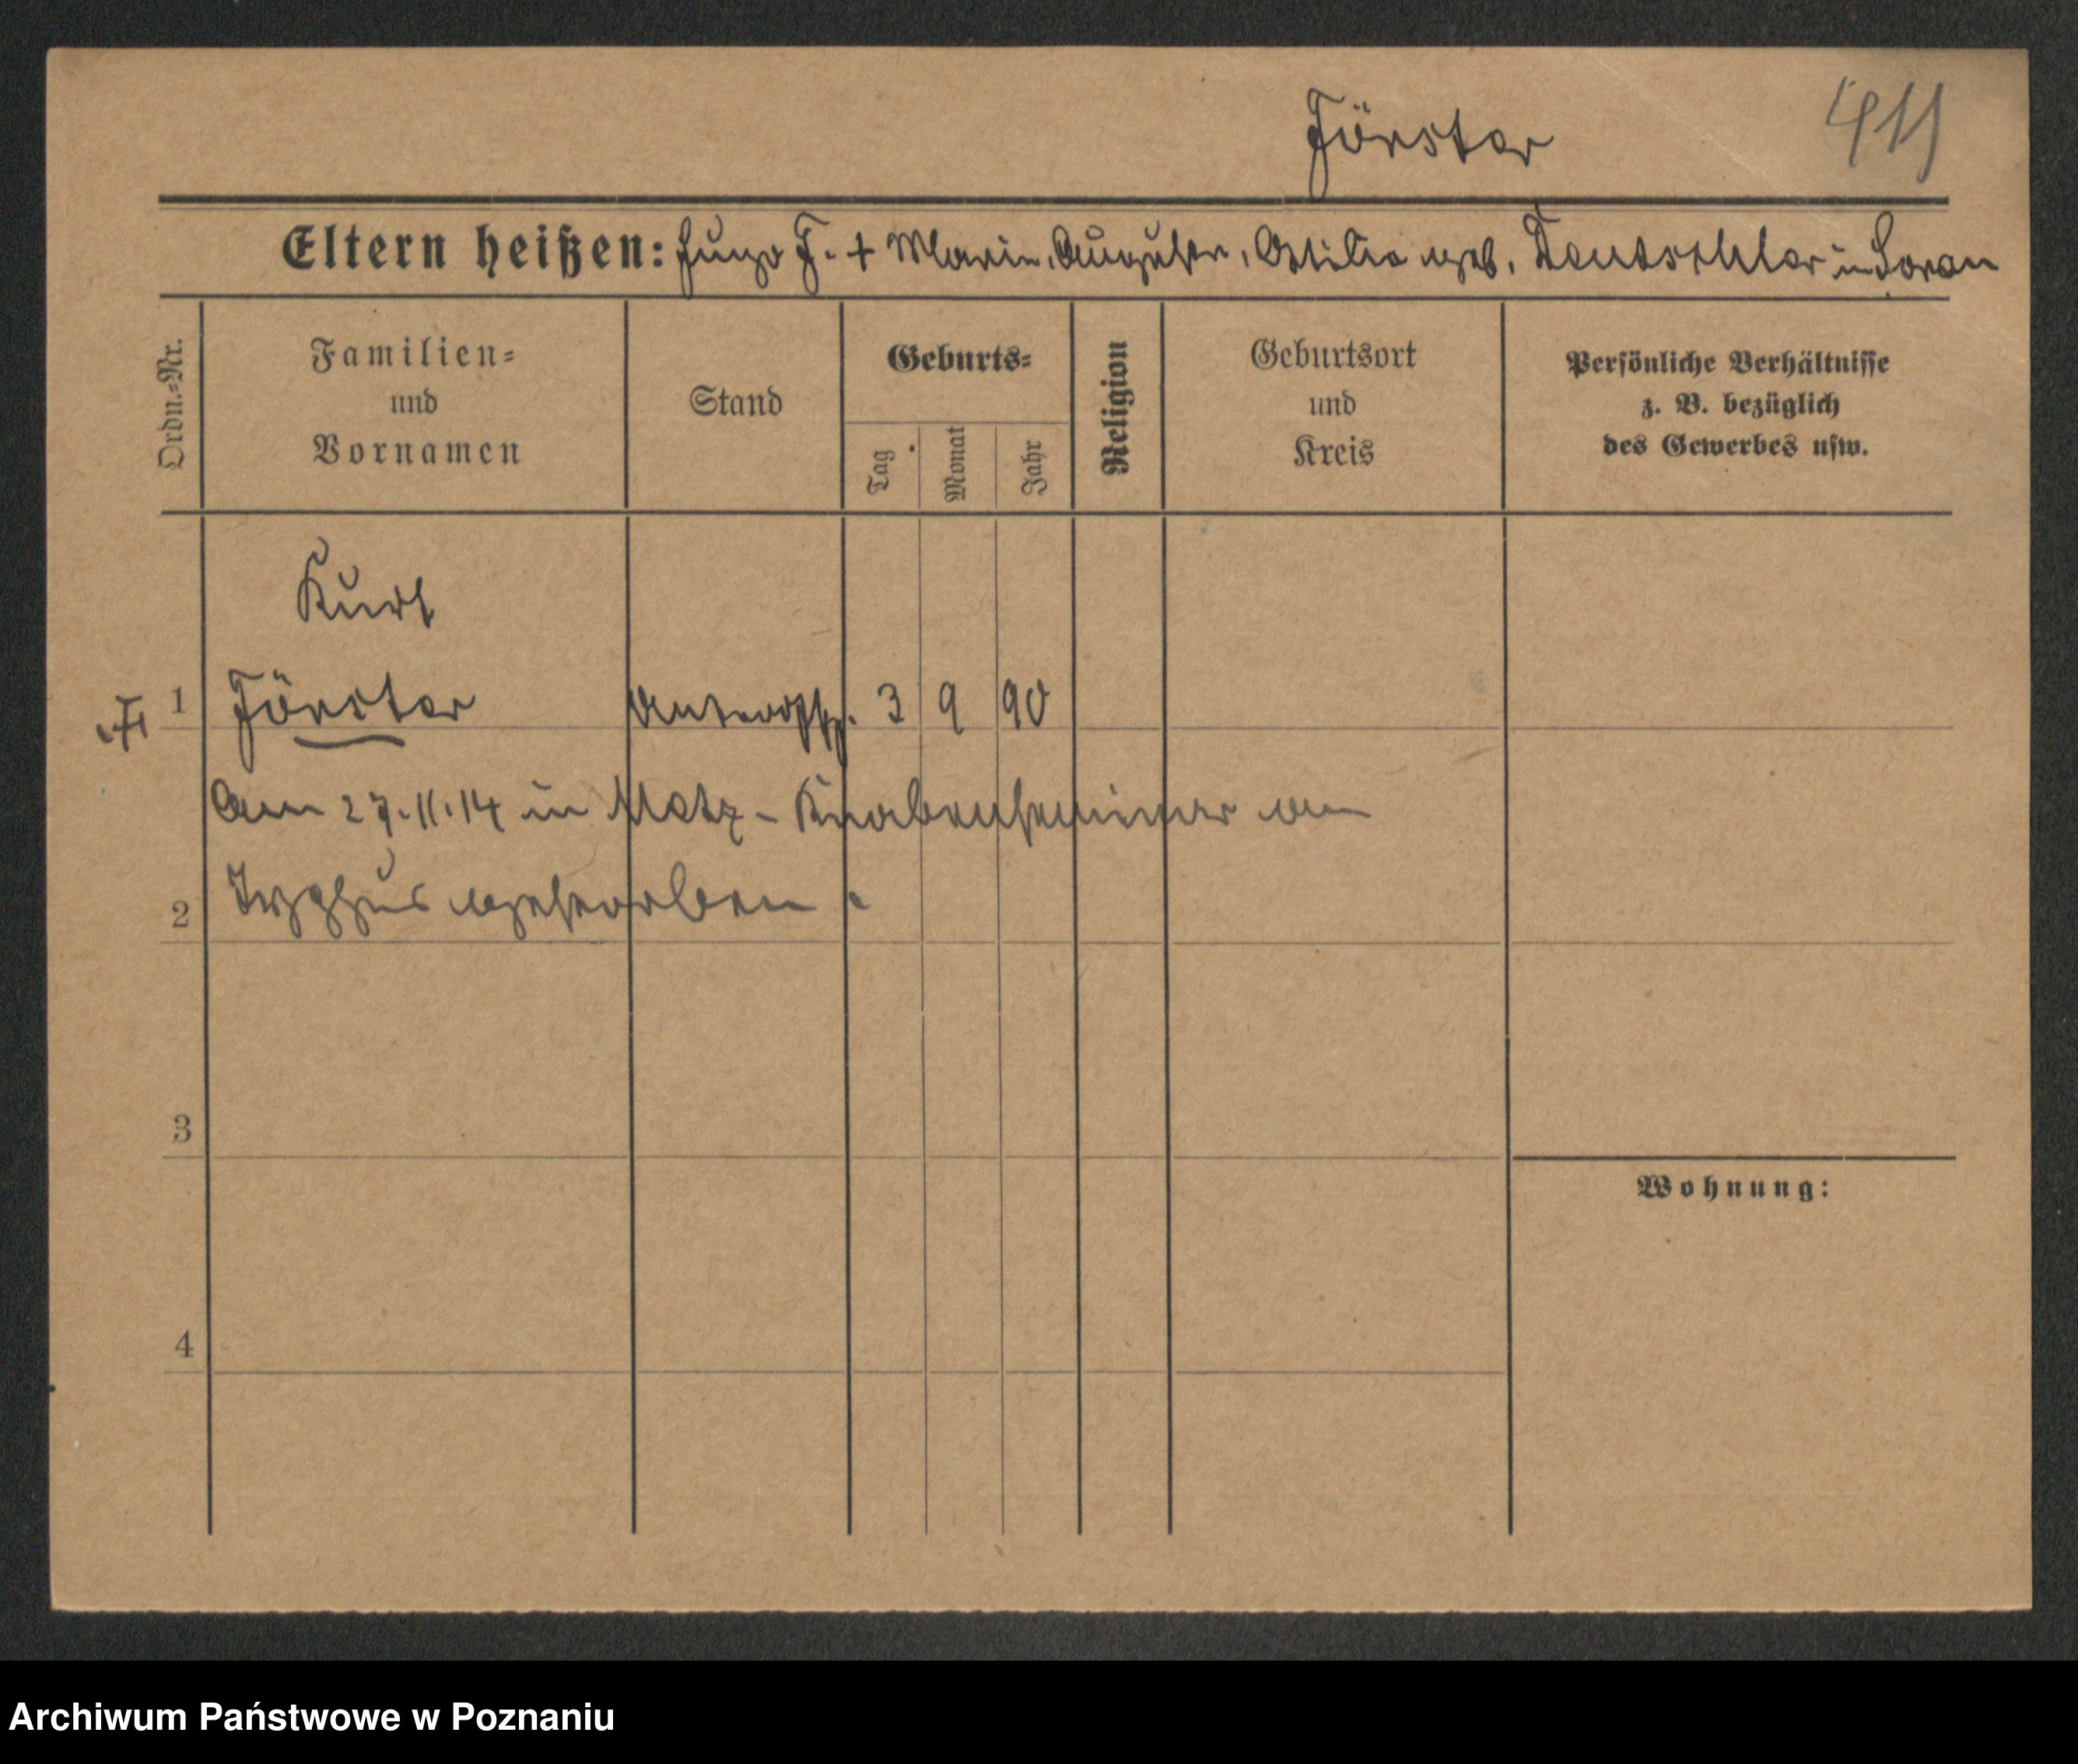 Förster 411
Eltern heißen: Hugo F. + Marie, Auguste, Ottilie geb. Deutschler in Soran
Ordn.=Nr.
Familien=
und
Vornamen
Stand
Geburts=
Tag
Monat
Jahr
Religion
Geburtsort
und
Kreis
Persönliche Verhältnisse
z. B. bezüglich
des Gewerbes usw.
Kurt
1 Förster Unteroffz. 3 9 90
Am 27.11.14 in Metz - Knabenseminar an
2 Typhus gestorben.
3
Wohnung:
4
Archiwum Państwowe w Poznaniu